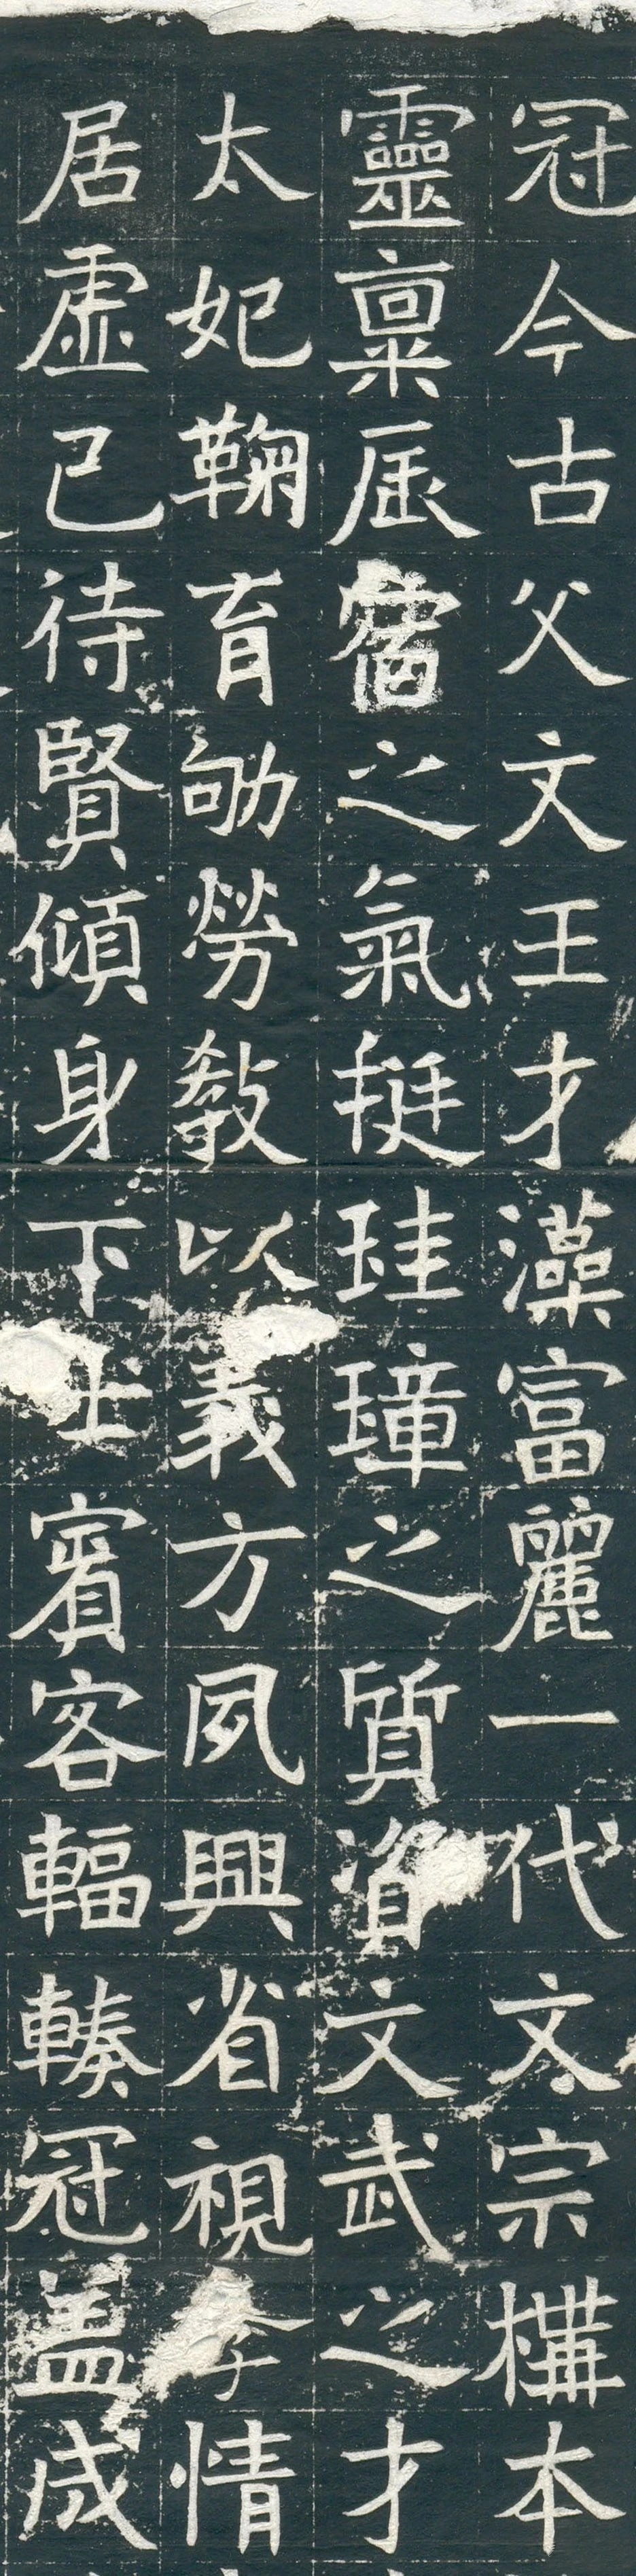 冠今古父文王才藻富麗一代文宗構本
靈稟辰宿之氣挺珪璋之質資文武之才
太妃鞠育劬勞敎以義方夙興省視情
居虛己待賢傾身下士賓客輻輳冠盖成